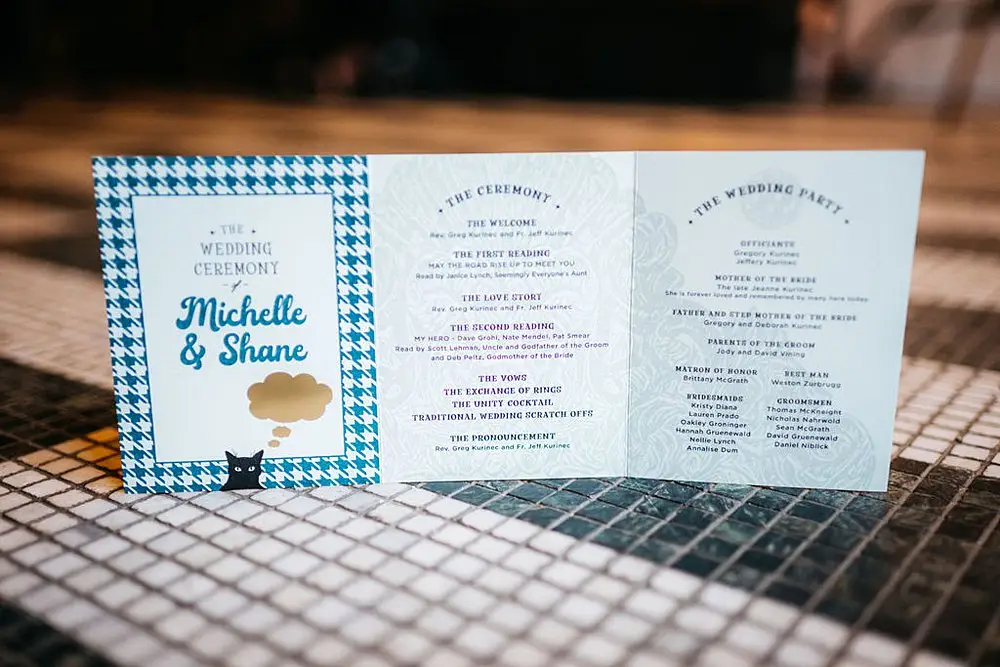 THE
WEDDING
CEREMONY
of
Michelle
& Shane
THE CEREMONY
THE WELCOME
Rev. Greg Kurinec and Fr. Jeff Kurinec
THE FIRST READING
MAY THE ROAD RISE UP TO MEET YOU
Read by Janice Lynch, Seemingly Everyone's Aunt
THE LOVE STORY
Rev. Greg Kurinec and Fr. Jeff Kurinec
THE SECOND READING
MY HERO - Dave Grohl, Nate Mendel, Pat Smear
Read by Scott Lehman, Uncle and Godfather of the Groom
and Deb Peltz, Godmother of the Bride
THE VOWS
THE EXCHANGE OF RINGS
THE UNITY COCKTAIL
TRADITIONAL WEDDING SCRATCH OFFS
THE PRONOUNCEMENT
Rev. Greg Kurinec and Fr. Jeff Kurinec
THE WEDDING PARTY
OFFICIANTS
Gregory Kurinec
Jeffery Kurinec
MOTHER OF THE BRIDE
The late Jeanne Kurinec
She is forever loved and remembered by many here today
FATHER AND STEP MOTHER OF THE BRIDE
Gregory and Deborah Kurinec
PARENTS OF THE GROOM
Jody and David Vining
MATRON OF HONOR
Brittany McGrath
BEST MAN
Weston Zurbrugg
BRIDESMAIDS
Kristy Diana
Lauren Prado
Oakley Groninger
Hannah Gruenewald
Nellie Lynch
Annalise Dum
GROOMSMEN
Thomas McKneight
Nicholas Nahrwold
Sean McGrath
David Gruenewald
Daniel Niblick